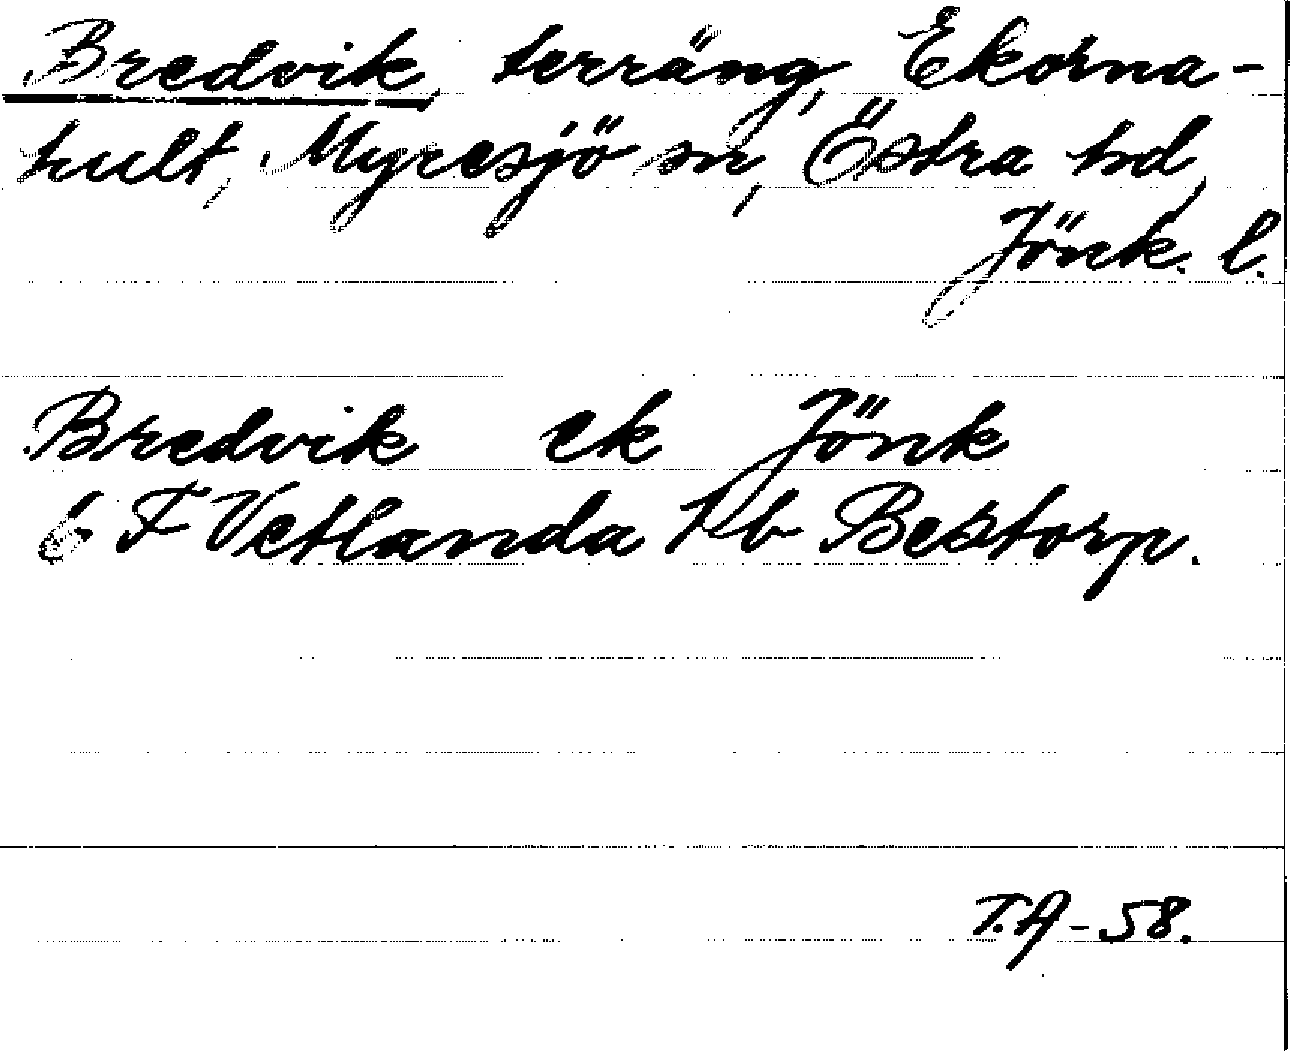 Bredvik, terräng, Ekorna-
hult, Myresjö sn, Östra hd,
Jönk. l.
Bredvik ek Jönk
6 F Vetlanda kb Bestorp.
T.A-58.